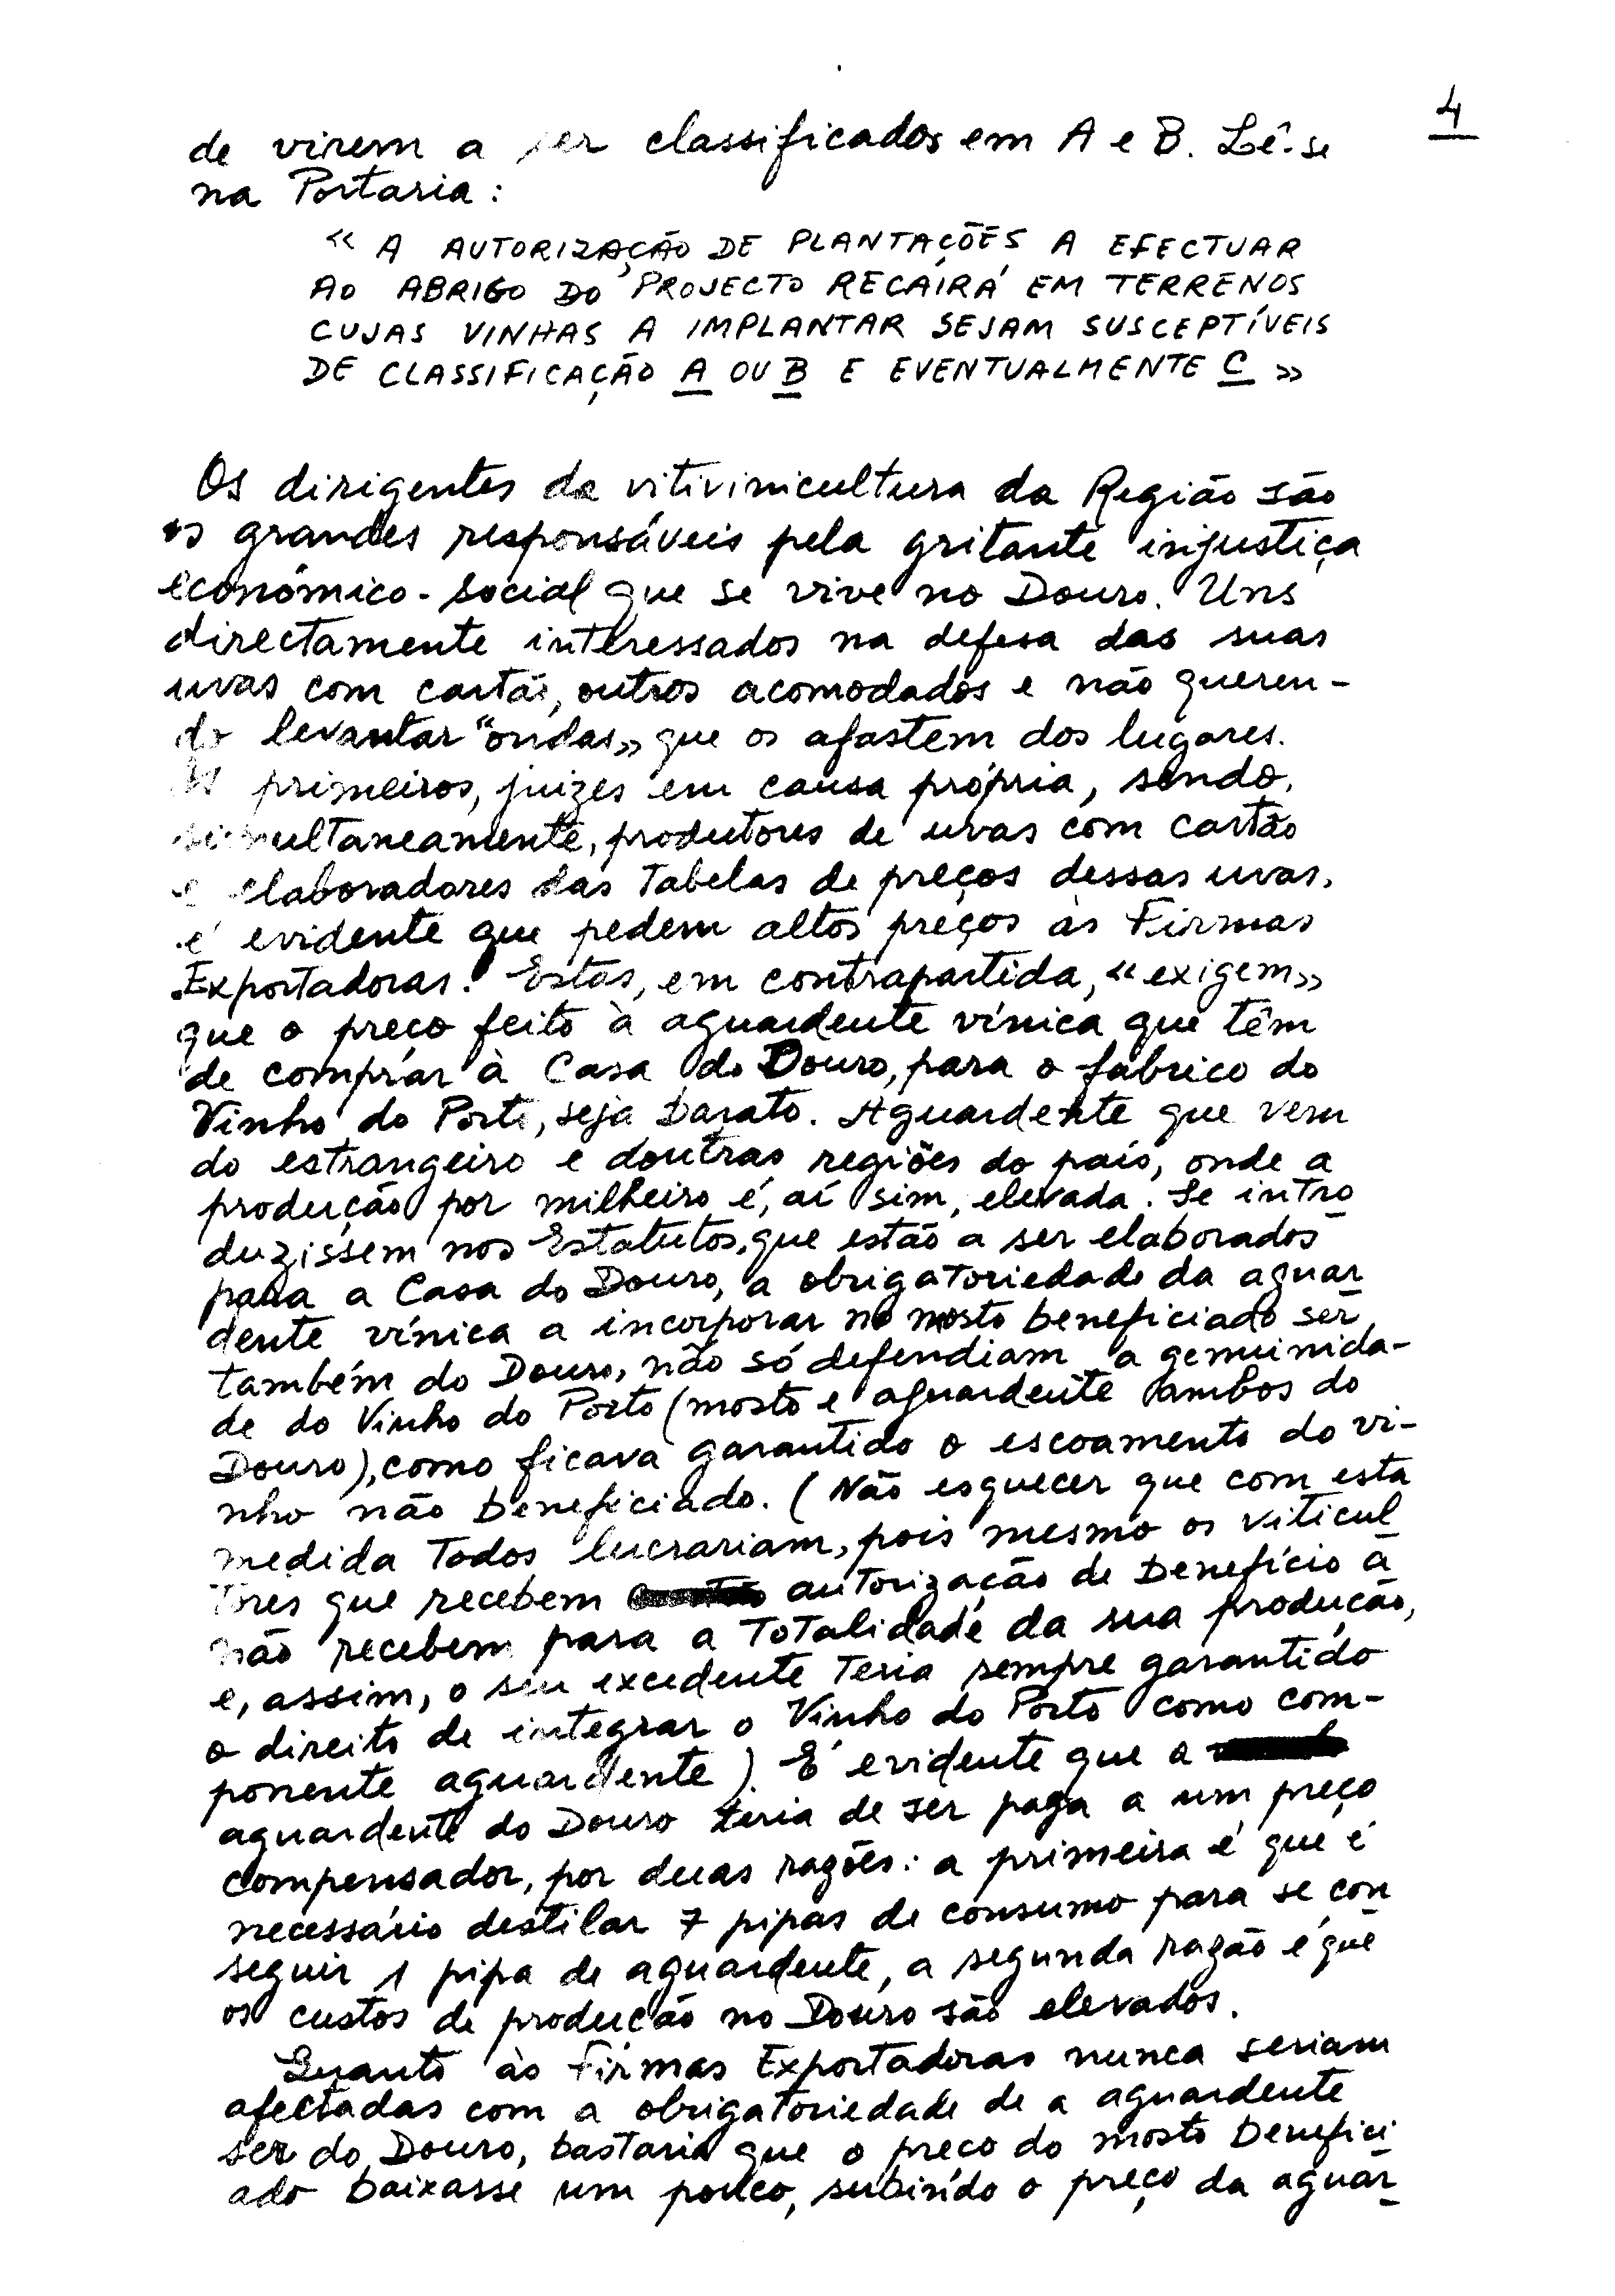 4
de virem a ser classificados em A e B. Lê-se
na Portaria:
« A AUTORIZAÇÃO DE PLANTAÇÕES A EFECTUAR
AO ABRIGO DO PROJECTO RECAÍRÁ EM TERRENOS
CUJAS VINHAS A IMPLANTAR SEJAM SUSCEPTÍVEIS
DE CLASSIFICAÇÃO A OU B E EVENTUALMENTE C »
Os dirigentes da vitivinicultura da Região são
os grandes responsáveis pela gritante injustiça
económico-social que se vive no Douro. Uns
directamente interessados na defesa das suas
uvas com cartão, outros acomodados e não queren-
do levantar "ondas» que os afastem dos lugares.
Os primeiros, juizes em causa própria, sendo,
simultaneamente, produtores de uvas com cartão
e elaboradores das Tabelas de preços dessas uvas,
é evidente que pedem altos preços às Firmas
Exportadoras. Estas, em contrapartida, «exigem»
que o preço feito à aguardente vínica que têm
de comprar à Casa do Douro, para o fabrico do
Vinho do Porto, seja barato. Aguardente que vem
do estrangeiro e doutras regiões do país, onde a
produção por milheiro é, aí sim, elevada. Se intro
duzissem nos Estatutos, que estão a ser elaborados
para a Casa do Douro, a obrigatoriedade da aguar
dente vínica a incorporar no mosto beneficiado ser
também do Douro, não só defendiam a genuinida-
de do Vinho do Porto (mosto e aguardente ambos do
Douro), como ficava garantido o escoamento do vi-
nho não beneficiado. (Não esquecer que com esta
medida Todos lucrariam, pois mesmo os viticul
tores que recebem autorização de benefício a
não recebem para a Totalidade da sua produção,
e, assim, o seu excedente Teria sempre garantido
o direito de integrar o Vinho do Porto como com-
ponente aguardente). É evidente que a
aguardente do Douro teria de ser paga a um preço
compensador, por duas razões: a primeira é que é
necessário destilar 7 pipas de consumo para se con
seguir 1 pipa de aguardente, a segunda razão é que
os custos de produção no Douro são elevados.
Quanto às Firmas Exportadoras nunca seriam
afectadas com a obrigatoriedade de a aguardente
ser do Douro, bastaria que o preço do mosto benefici
ado baixasse um pouco, subindo o preço da aguar